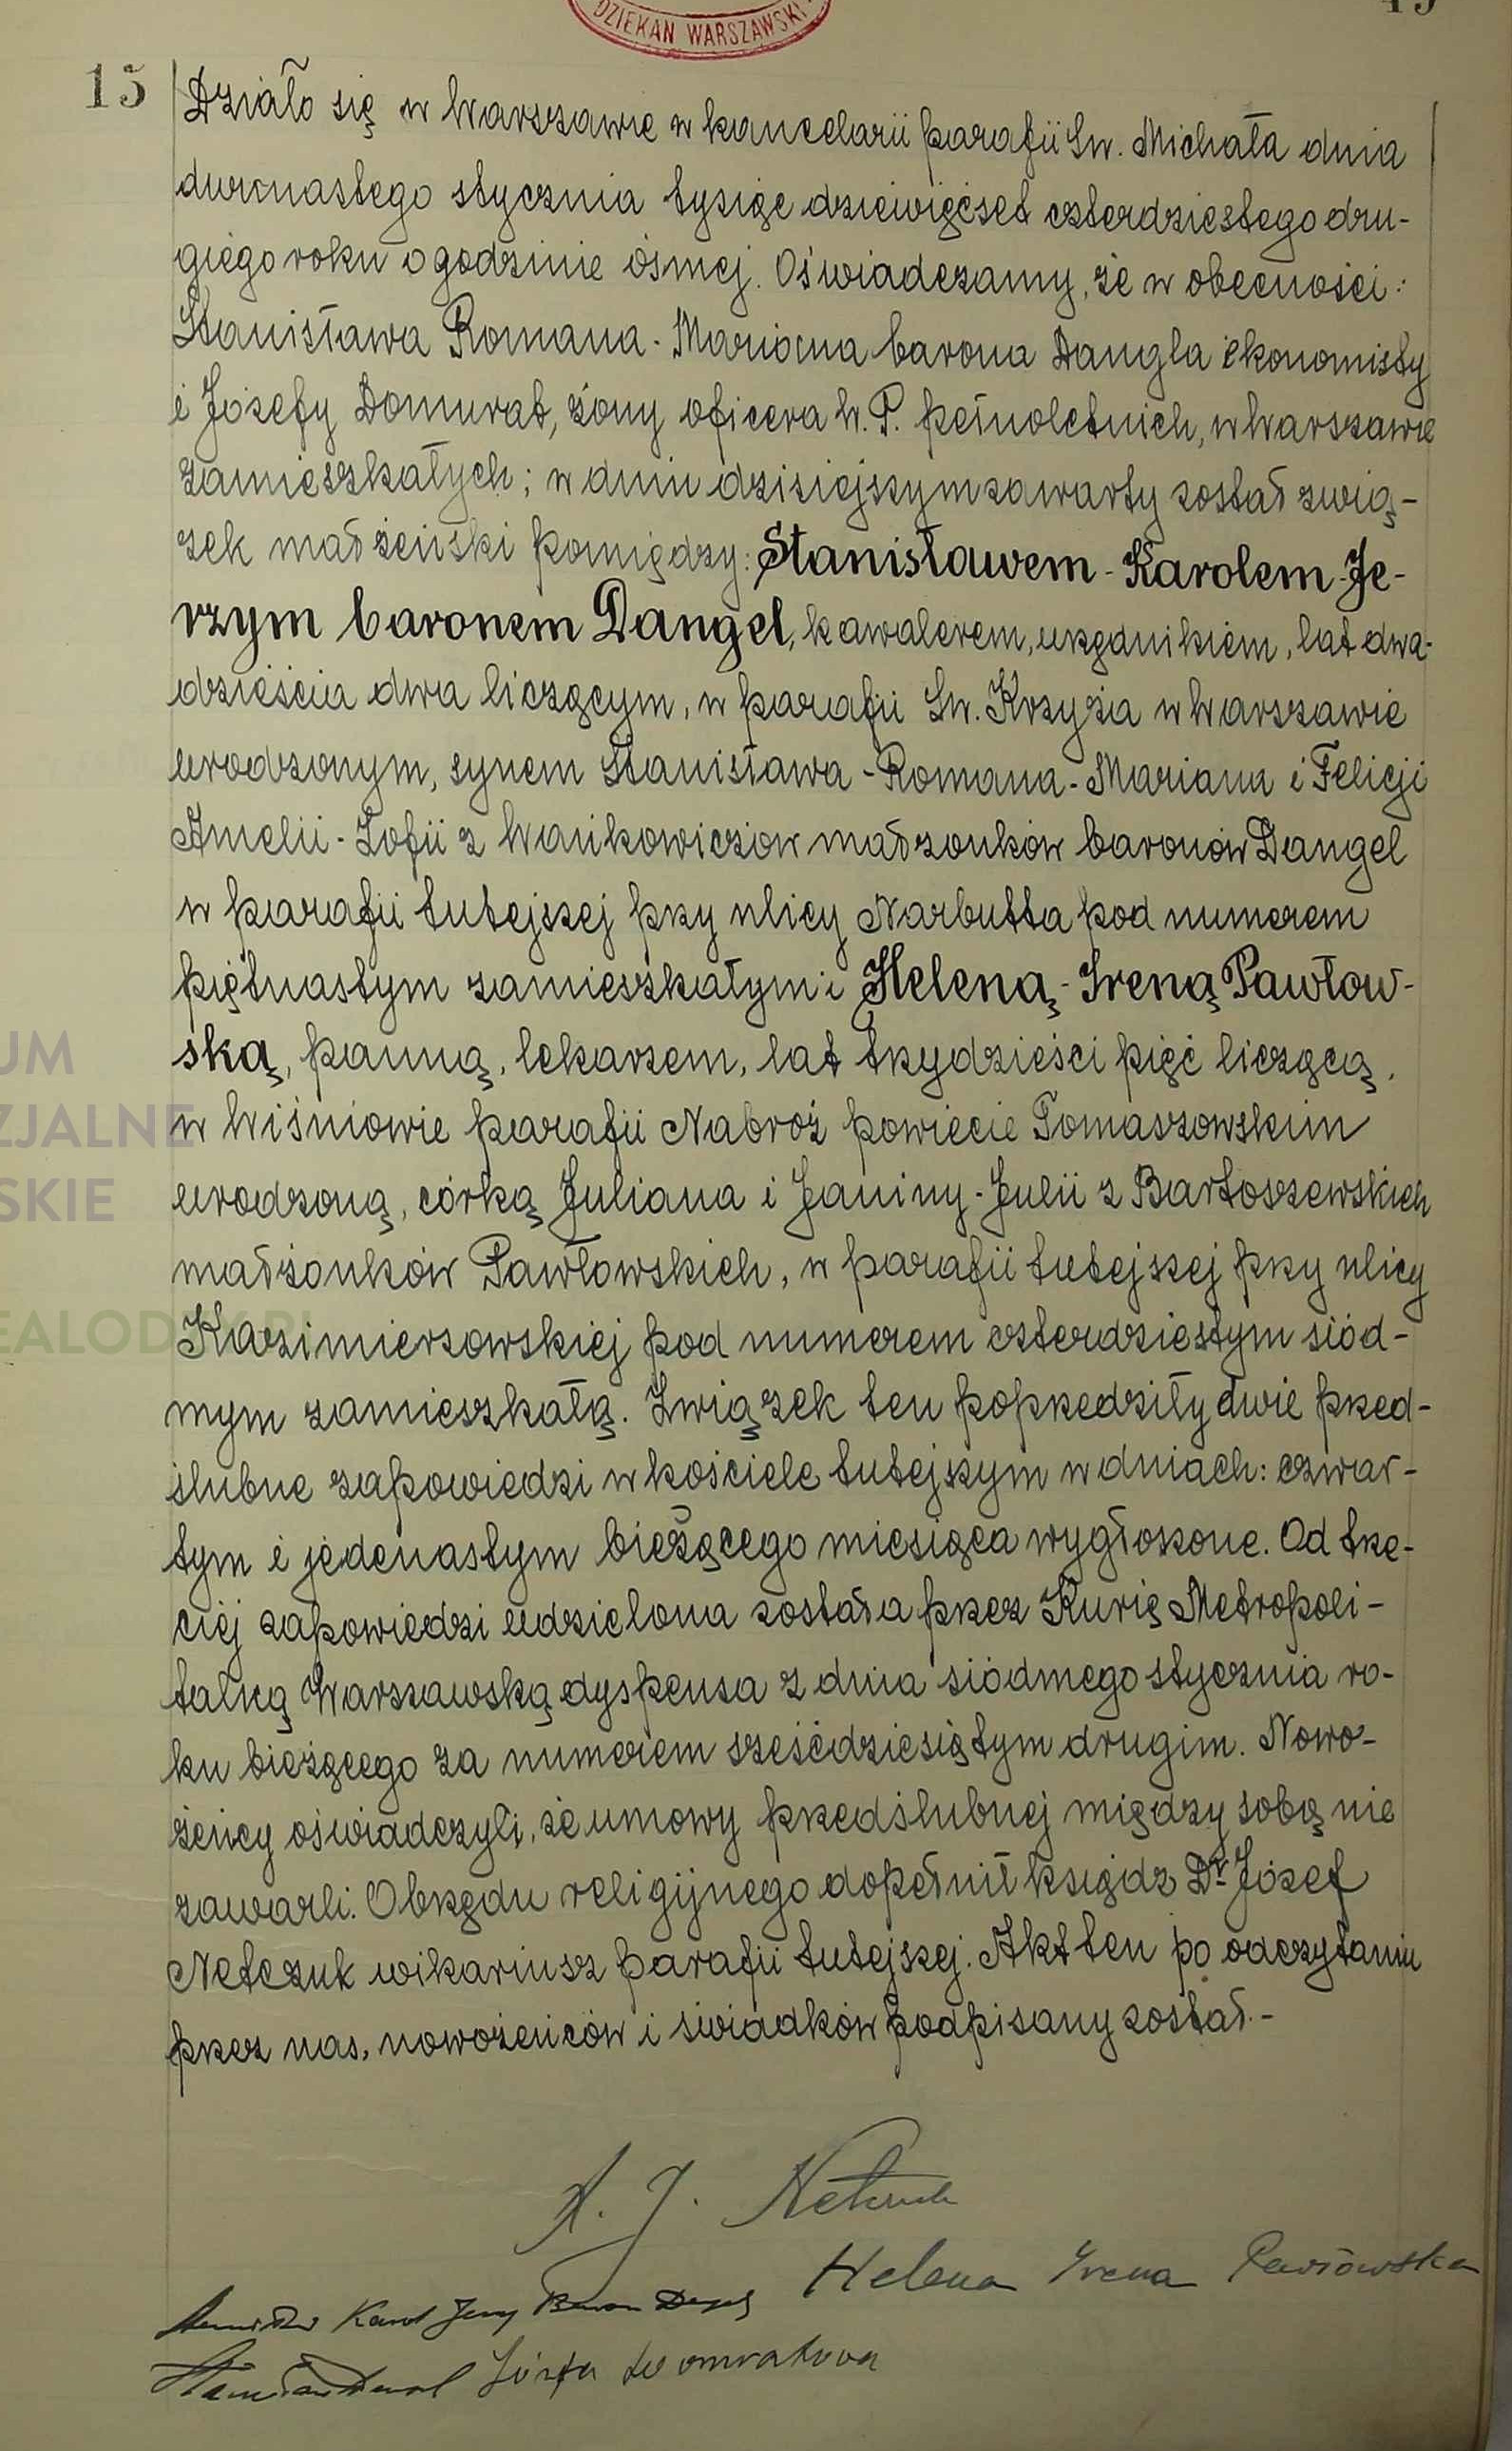 DZIEKAN WARSZAWSKI
15
Działo się w Warszawie w kancelarii parafii Św. Michała dnia
dwunastego stycznia tysiąc dziewięćset czterdziestego dru-
giego roku o godzinie ósmej. Oświadczamy, że w obecności:
Stanisława Romana-Mariana barona Dangla ekonomisty
i Józefy Domurat, żony oficera W.P. pełnoletnich, w Warszawie
zamieszkałych; w dniu dzisiejszym zawarty został zwią-
zek małżeński pomiędzy: Stanisławem-Karolem-Je-
rzym baronem Dangel, kawalerem, urzędnikiem, lat dwa-
dzieścia dwa liczącym, w parafii Św. Krzyża w Warszawie
urodzonym, synem Stanisława-Romana-Mariana i Felicji
Amelii-Zofii z Wańkowiczów małżonków baronów Dangel
w parafii tutejszej przy ulicy Narbutta pod numerem
piętnastym zamieszkałym i Heleną-Ireną Pawłow-
ską, panną, lekarzem, lat trzydzieści pięć liczącą,
w Wiśniowie parafii Nabroż powiecie Tomaszowskim
urodzoną, córką Juliana i Janiny-Julii z Bartoszewskich
małżonków Pawłowskich, w parafii tutejszej przy ulicy
Kazimierzowskiej pod numerem czterdziestym siód-
mym zamieszkałą. Związek ten poprzedziły dwie przed-
ślubne zapowiedzi w kościele tutejszym w dniach: czwar-
tym i jedenastym bieżącego miesiąca wygłoszone. Od trze-
ciej zapowiedzi udzielona została przez Kurię Metropoli-
talną Warszawską dyspensa z dnia siódmego stycznia ro-
ku bieżącego za numerem sześćdziesiątym drugim. Nowo-
żeńcy oświadczyli, że umowy przedślubnej między sobą nie
zawarli. Obrzędu religijnego dopełnił ksiądz Dr Józef
Netczuk wikariusz parafii tutejszej. Akt ten po odczytaniu
przez nas, nowożeńców i świadków podpisany został.-
J. Netczuk
Helena Irena Pawłowska
Stanisław Karol Jerzy Baron Dangel
Stanisław Dangel Józefa Domuratowa
UM
ZJALNE
SKIE
EALOD